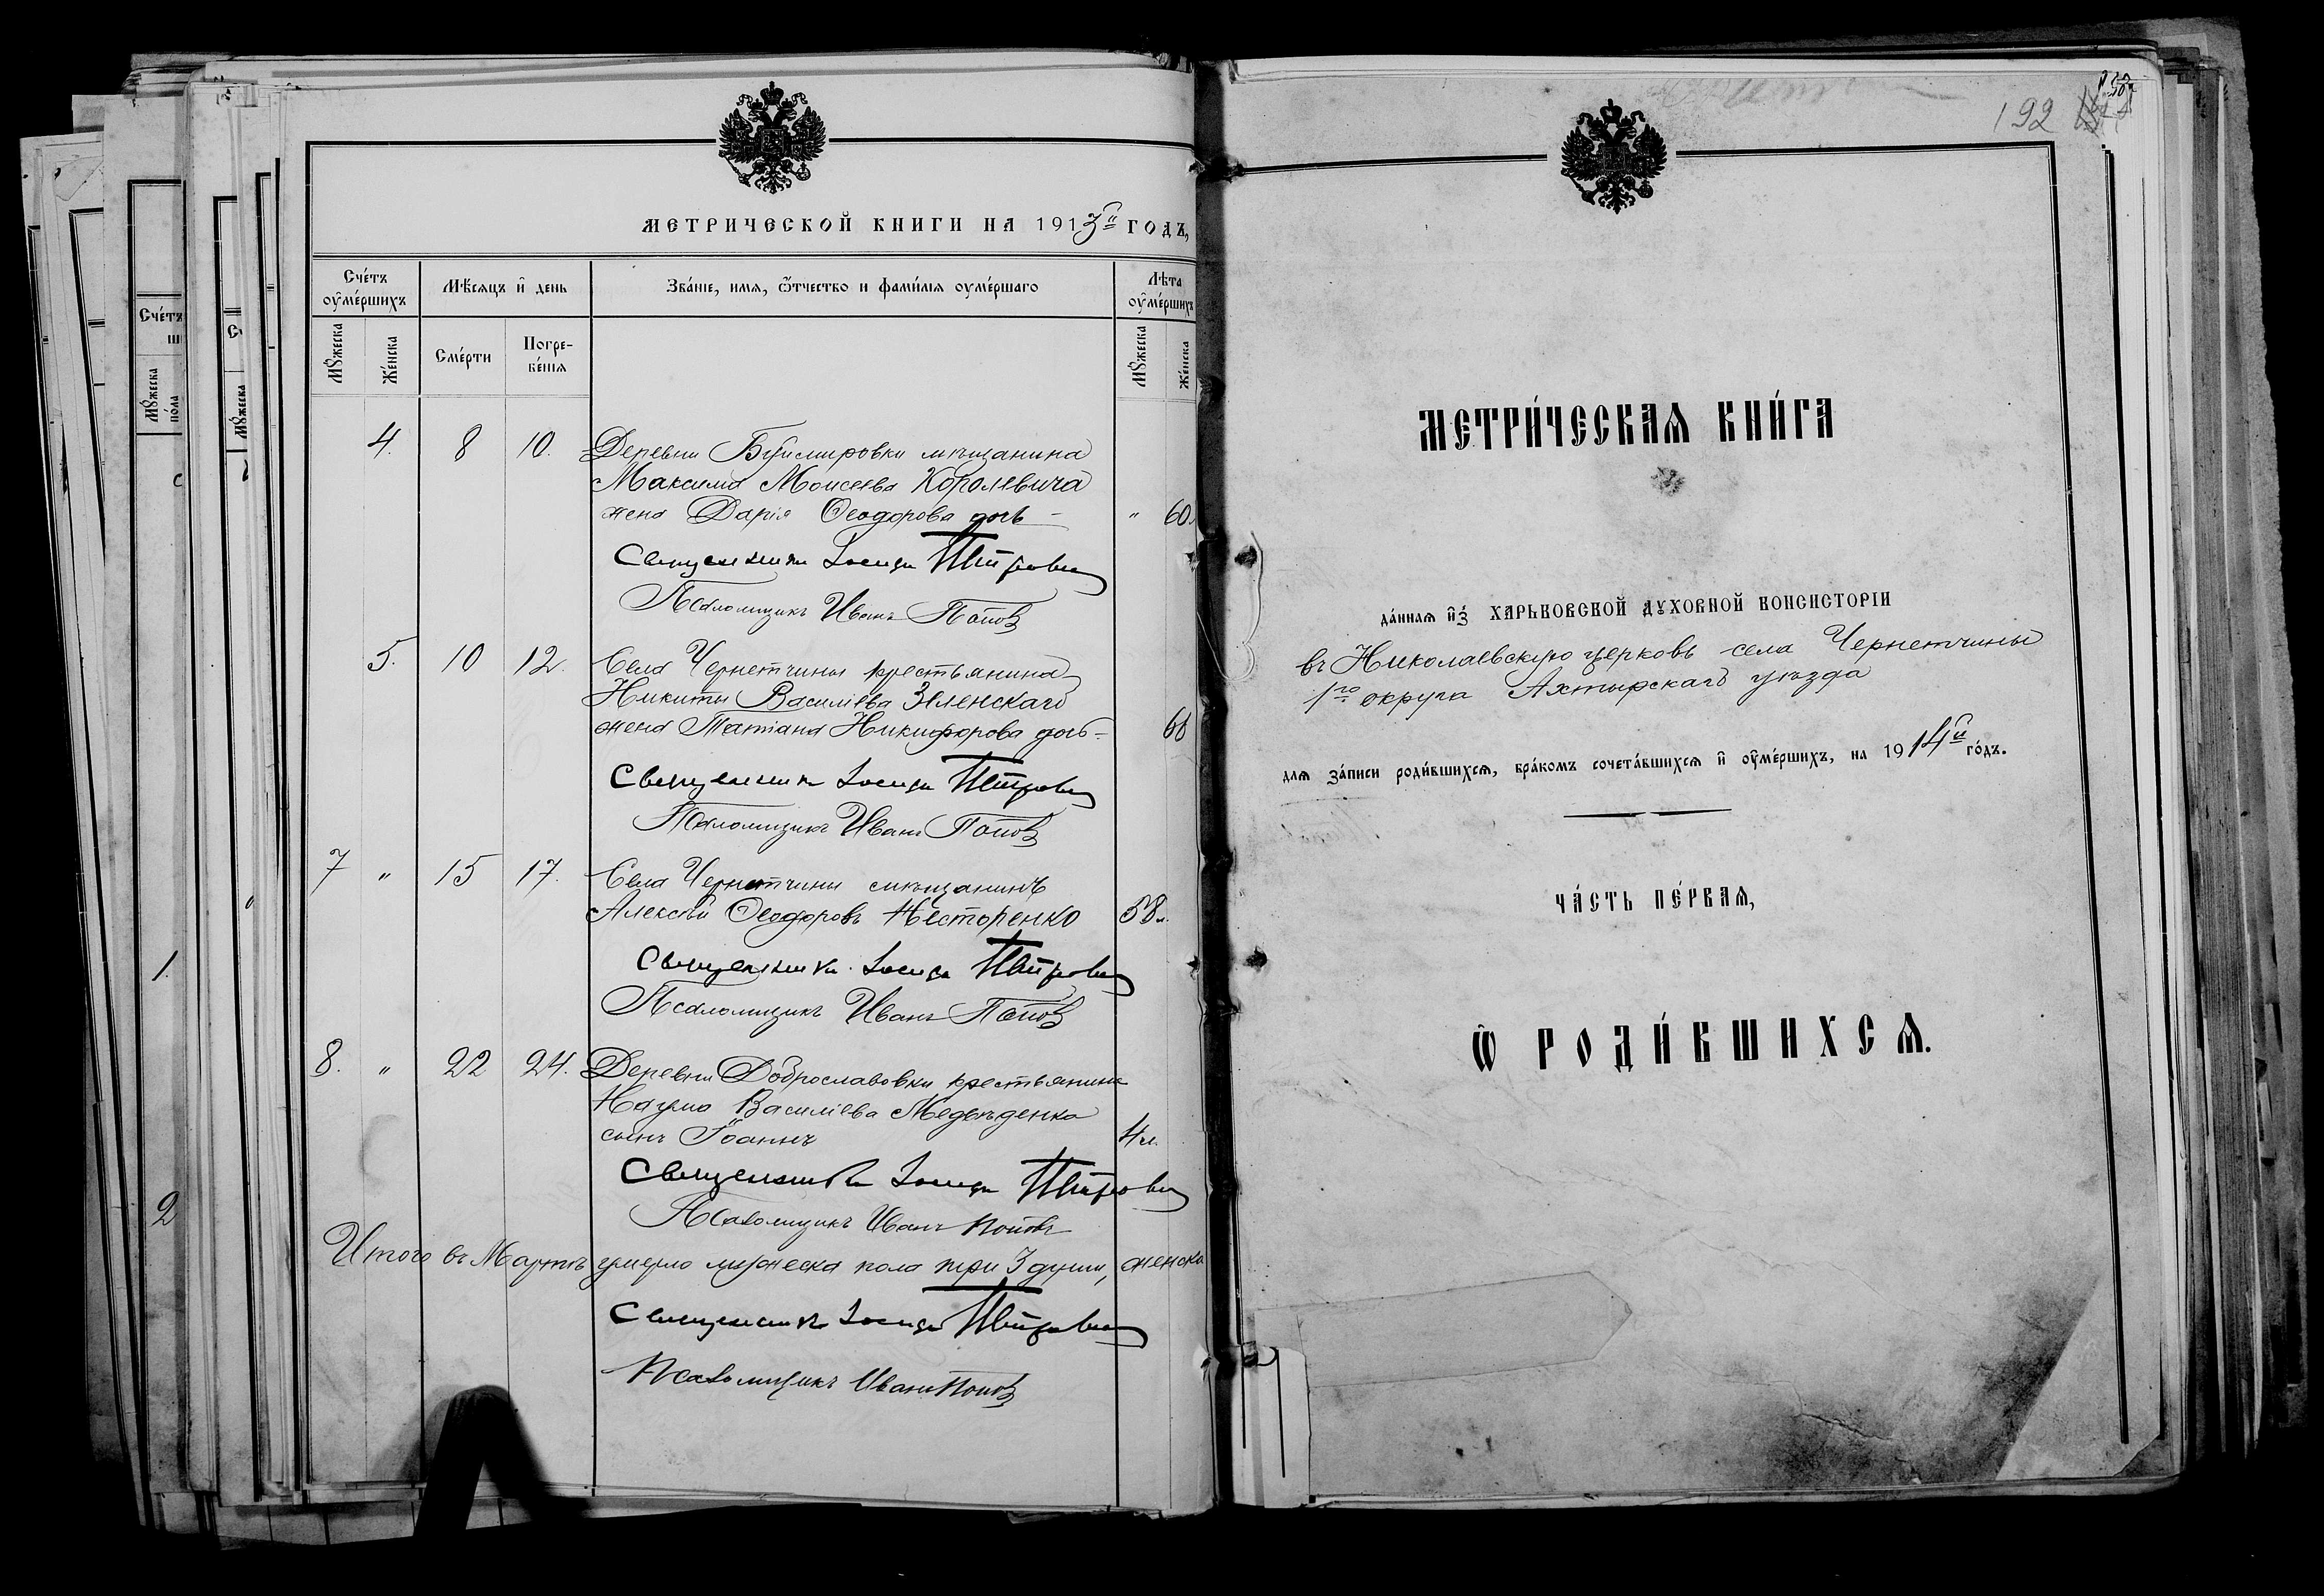 МЕТРИЧЕСКОЙ КНИГИ НА 1913й ГОДЪ,
Счетъ оумершихъ
Мѣсяцъ и день
Званіе, имя, ѿтчество и фамилія оумершаго
Лѣта оумершихъ
Мꙋжеска
Женска
Смерти
Погребенія
Мꙋжеска
Женска
4. 8 10. Деревни Буймировки мѣщанина
Максима Моисеева Королевича
жена Дарія Ѳеодорова дочь - " 60.
Священникъ Іосифъ Петровъ
Псаломщикъ Иванъ Поповъ
5. 10 12. Села Чернетчины крестьянина
Никиты Василіева Зеленскаго
жена Татіана Никифорова дочь -
Священникъ Іосифъ
Псаломщикъ Иванъ Поповъ
7 " 15 17. Села Чернетчины мѣщанинъ
Алексѣй Ѳеодоровъ Несторенко 58л.
Священникъ Іосифъ
Псаломщикъ Иванъ Поповъ
8. " 22 24. Деревни Доброславовки крестьянина
Наума Василіева Медвѣденка
сынъ Іоаннъ
Священникъ Іосифъ
Псаломщикъ Иванъ Поповъ
Итого въ Мартѣ умерло мужеска пола три 3 души, женска
Священникъ Іосифъ
Псаломщикъ Иванъ Поповъ
Счетъ
Мꙋжеска пола
1.
2
192
МЕТРИЧЕСКАЯ КНИГА
данная изъ ХАРЬКОВСКОЙ ДꙊХОВНОЙ КОНСИСТОРІИ
въ Николаевскую церковь села Чернетчины
1го округа Ахтырскаго уѣзда
для записи родившихся, бракомъ сочетавшихся и оумершихъ, на 1914й годъ.
ЧАСТЬ ПЕРВАЯ,
Ѡ РОДИВШИХСЯ.